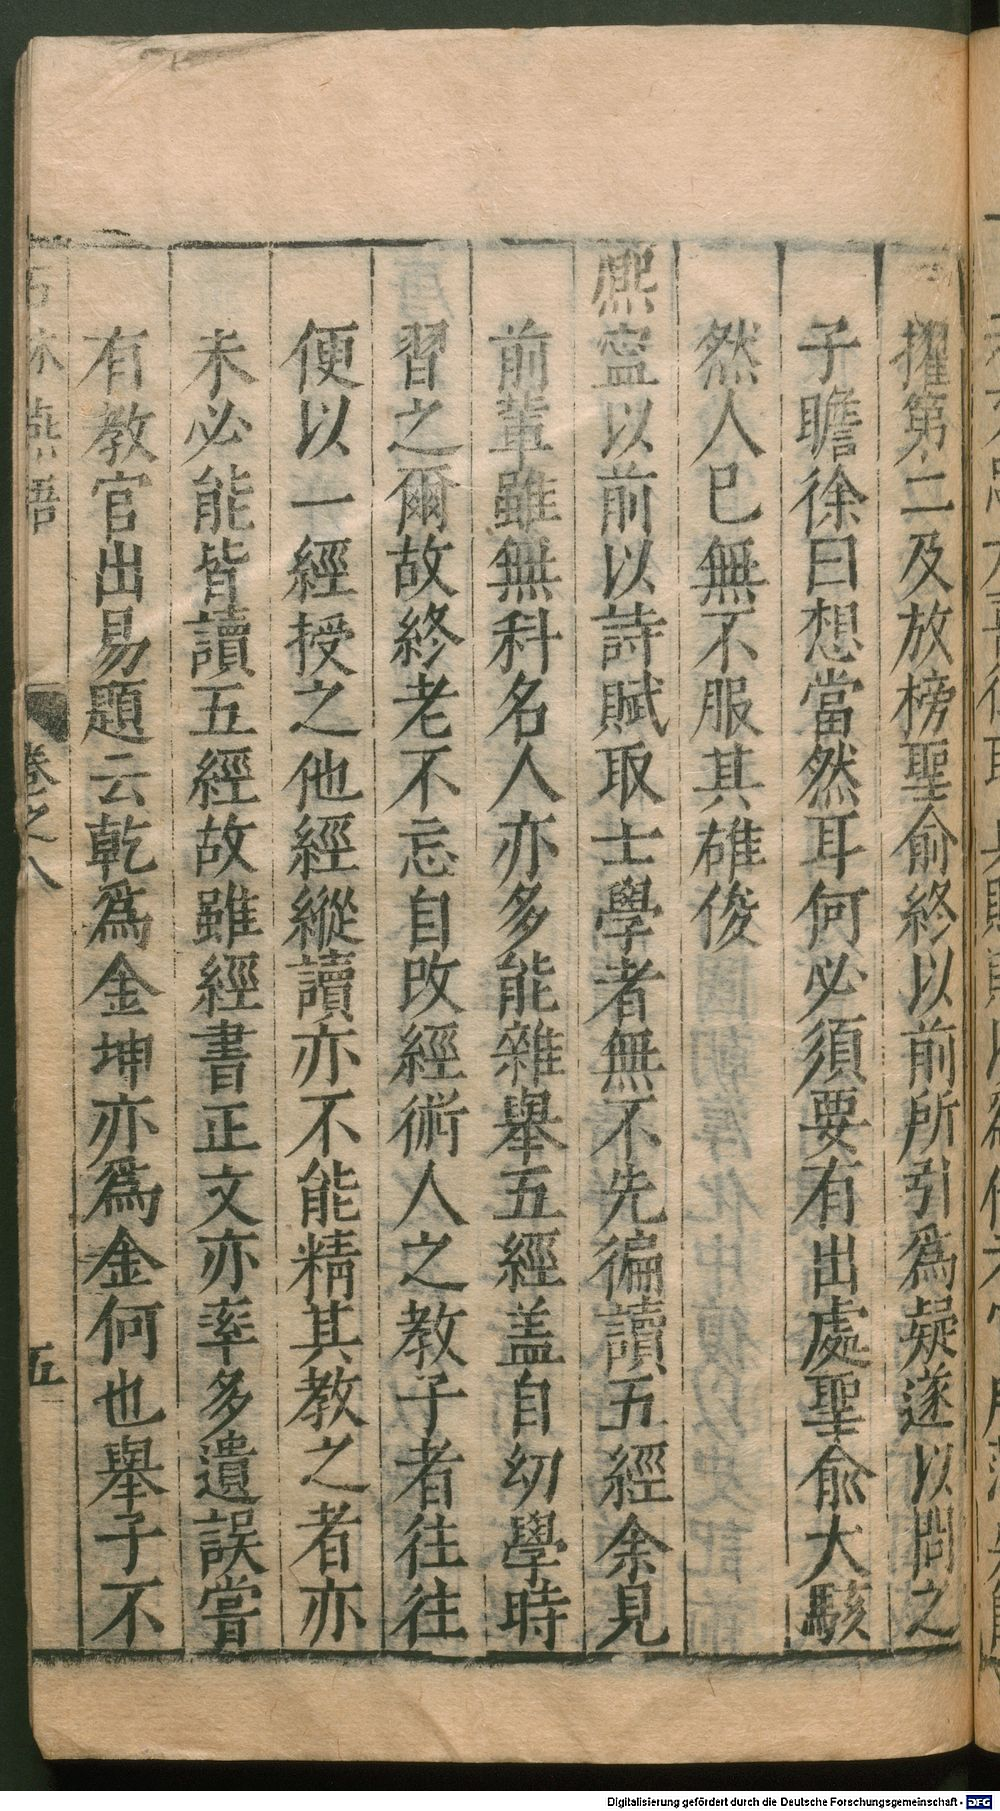 擢第二及放榜聖俞終以前所引爲疑遂以問之
子瞻徐曰想當然耳何必須要有出處聖俞大駭
然人已無不服其雄俊
熈寧以前以詩賦取士學者無不先徧讀五經余見
前輩雖無科名人亦多能雜舉五經盖自幼學時
習之爾故終老不忘自改經術人之教子者往往
便以一經授之他經縱讀亦不能精其教之者亦
未必能皆讀五經故雖經書正文亦率多遺誤嘗
有教官出易題云乾爲金坤亦爲金何也舉子不
石林燕語 卷之八 五
Digitalisierung gefördert durch die Deutsche Forschungsgemeinschaft - DFG